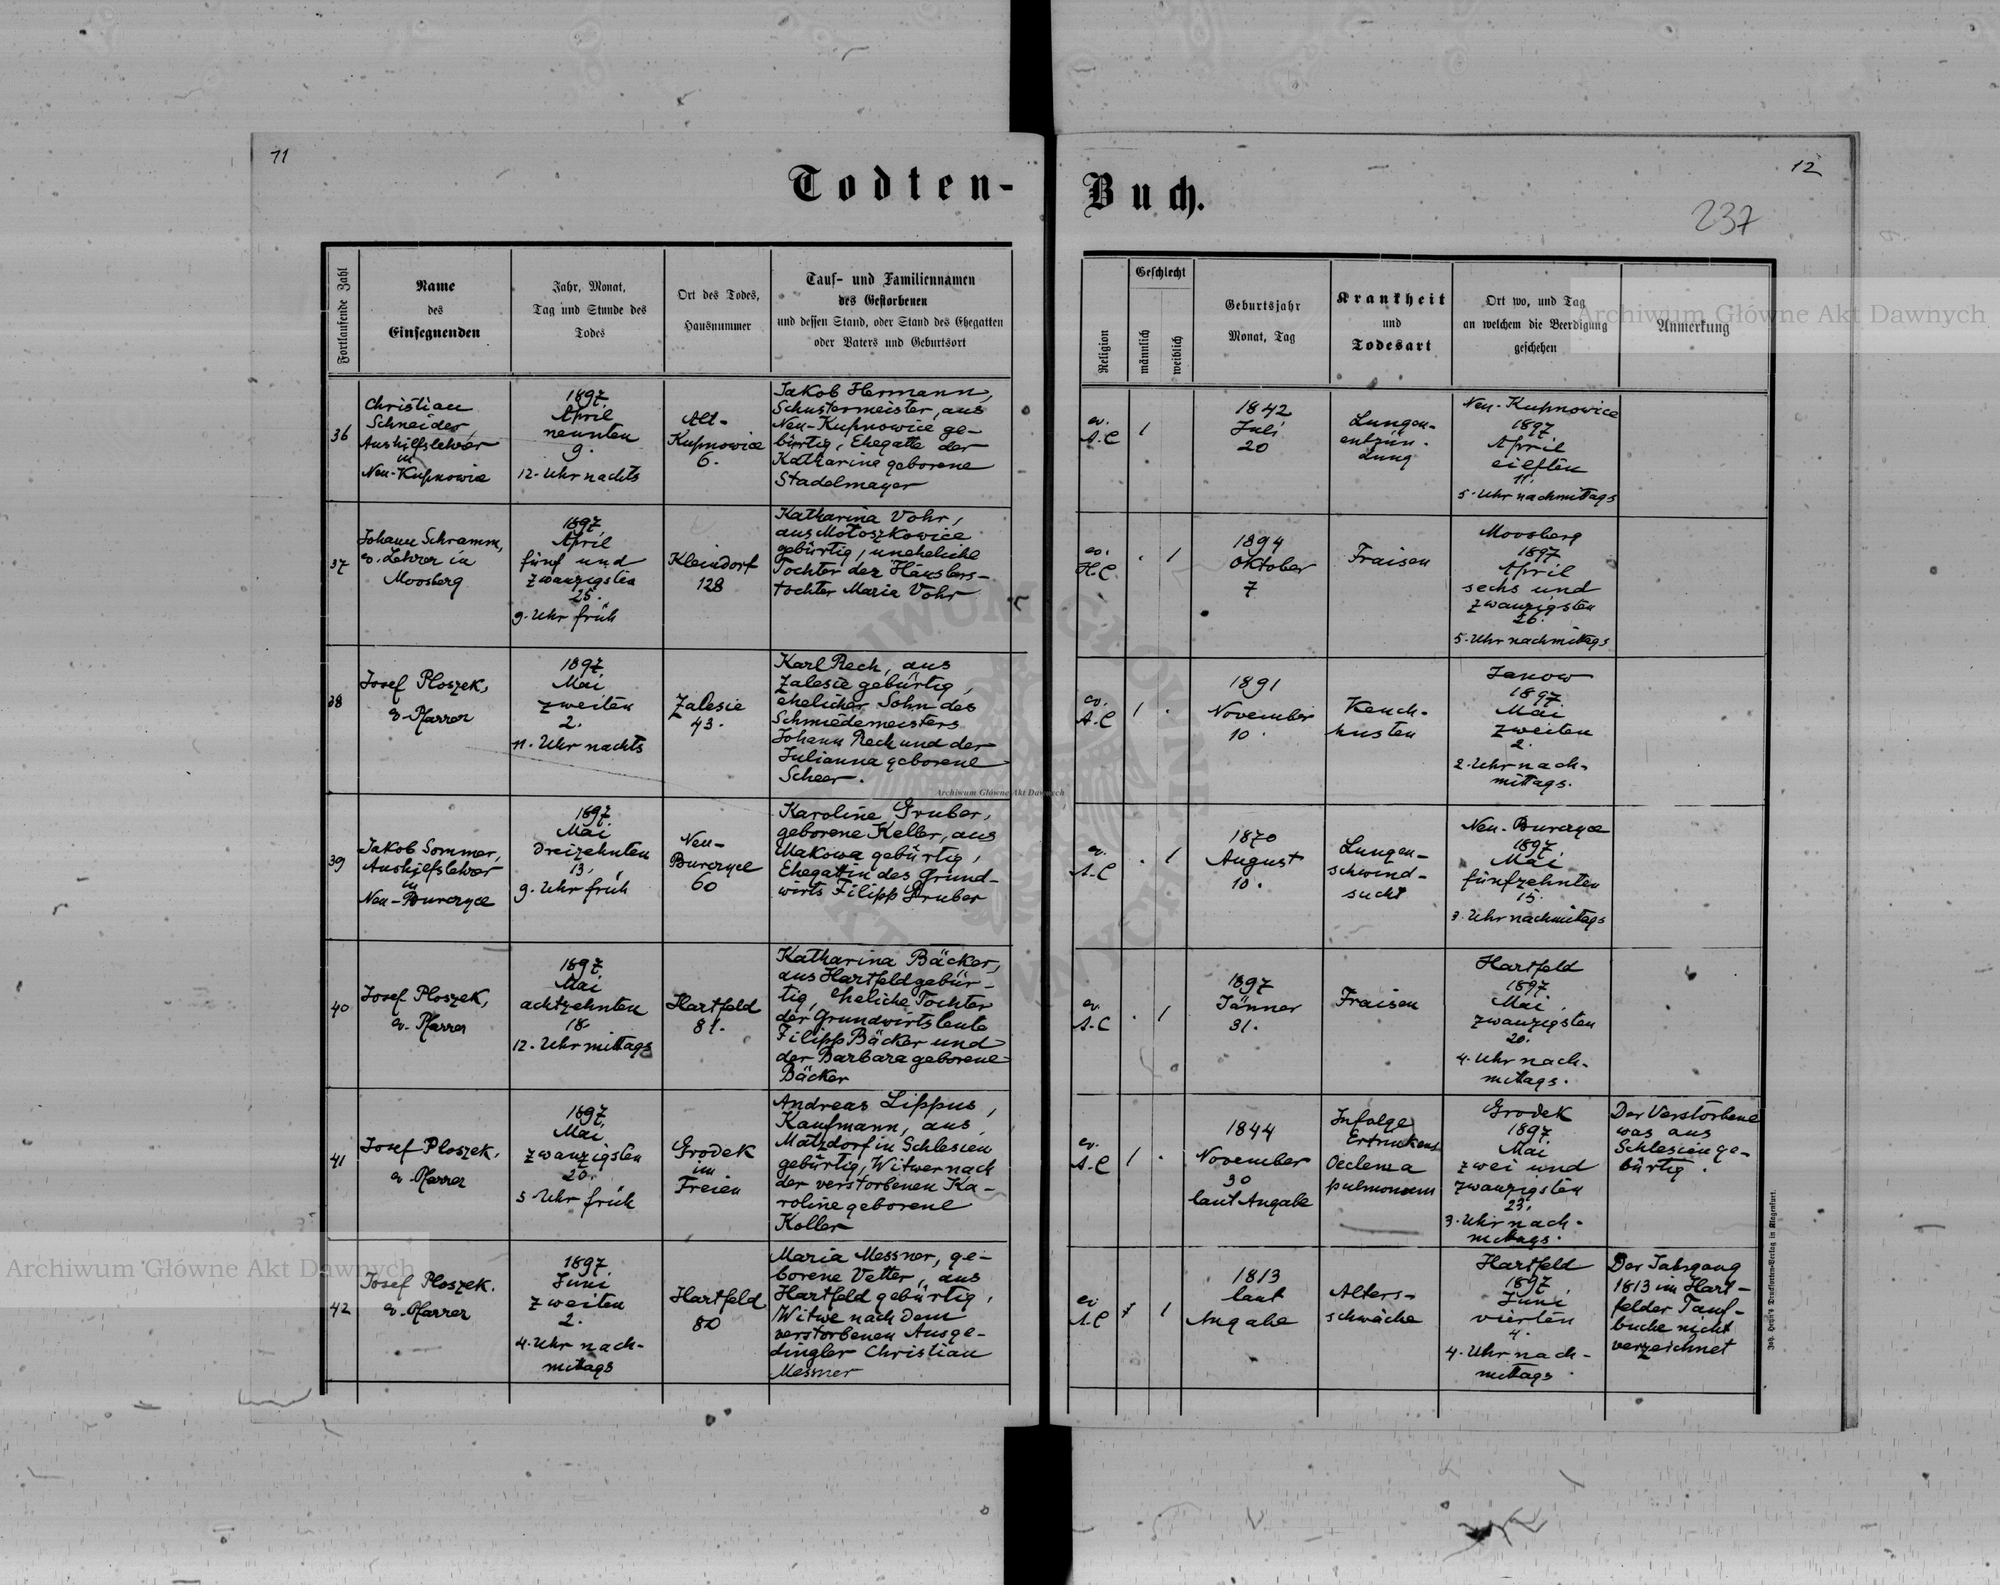 11
12
Todten-
Buch.
237
Fortlaufende Zahl
Name
des
Einsegnenden
Jahr, Monat,
Tag und Stunde des
Todes
Ort des Todes,
Hausnummer
Tauf- und Familiennamen
des Gestorbenen
und dessen Stand, oder Stand des Ehegatten
oder Vaters und Geburtsort
Religion
Geschlecht
männlich
weiblich
Geburtsjahr
Monat, Tag
Krankheit
und
Todesart
Ort wo, und Tag
an welchem die Beerdigung
geschehen
Anmerkung
36
Christian
Schneider,
Aushilfslehrer
in
Neu-Kupnowice
1897
April
neunten
9.
12. Uhr nachts
Alt-
Kupnowice
6.
Jakob Hermann,
Schustermeister, aus
Neu-Kupnowice ge-
bürtig, Ehegatte der
Katharine geborene
Stadelmayer
ev.
A.C
1
1842
Juli
20
Lungen-
entzün-
dung
Neu-Kupnowice
1897
April
eilften
11.
5. Uhr nachmittags
37
Johann Schramm,
ev. Lehrer in
Moosberg
1897
April
fünf und
zwanzigsten
25.
9. Uhr früh
Kleindorf
128
Katharina Vohr,
aus Mołoszkowice
gebürtig, uneheliche
Tochter der Häuslers-
tochter Maria Vohr
ev.
H.C.
. 1
1894
Oktober
7
Fraisen
Moosberg
1897
April
sechs und
zwanzigsten
26.
5. Uhr nachmittags
38
Josef Ploszek,
ev. Pfarrer
1897
Mai
zweiten
2.
11. Uhr nachts
Zalesie
43.
Karl Rech, aus
Zalesie gebürtig,
ehelicher Sohn des
Schmiedemeisters
Johann Rech und der
Julianna geborene
Scheer.
ev.
A.C
1 .
1891
November
10.
Keuch-
husten
Janow
1897
Mai
zweiten
2.
2. Uhr nach-
mittags.
39
Jakob Sommer,
Aushilfslehrer
in
Neu-Burczyce
1897
Mai
dreizehnten
13.
9. Uhr früh
Neu-
Burczyce
60
Karoline Gruber,
geborene Keller, aus
Makowa gebürtig,
Ehegattin des Grund-
wirts Filipp Gruber
ev.
A.C
. 1
1870
August
10.
Lungen-
schwind-
sucht
Neu-Burczyce
1897
Mai
fünfzehnten
15.
3. Uhr nachmittags
40
Josef Ploszek,
ev. Pfarrer
1897
Mai
achtzehnten
18.
12. Uhr mittags
Hartfeld
81.
Katharina Bäcker,
aus Hartfeld gebür-
tig, eheliche Tochter
der Grundwirtsleute
Filipp Bäcker und
der Barbara geborene
Bäcker
ev.
A.C
. 1
1897
Jänner
31.
Fraisen
Hartfeld
1897
Mai
zwanzigsten
20.
4. Uhr nach-
mittags.
41
Josef Ploszek,
ev. Pfarrer
1897
Mai
zwanzigsten
20.
5 Uhr früh
Grodek
im
Freien
Andreas Lippus,
Kaufmann, aus
Matzdorf in Schlesien
gebürtig, Witwer nach
der verstorbenen Ka-
roline geborene
Koller
ev.
A.C
1 .
1844
November
30
laut Angabe
Infolge
Ertrinkens
Oedema
pulmonum
Grodek
1897
Mai
zwei und
zwanzigsten
3. Uhr nach-
mittags.
Der Verstorbene
was aus
Schlesien ge-
bürtig.
42
Josef Ploszek.
ev. Pfarrer
1897
Juni
zweiten
2.
4. Uhr nach-
mittags
Hartfeld
80
Maria Messner, ge-
borene Vetter, aus
Hartfeld gebürtig,
Witwe nach dem
verstorbenen Ausge-
dingler Christian
Messner
ev
A.C
1
1813
laut
Angabe
Alters-
schwäche
Hartfeld
1897
Juni
vierten
4.
4. Uhr nach-
mittags
Der Jahrgang
1813 im Hart-
felder Tauf-
buche nicht
verzeichnet
Archiwum Główne Akt Dawnych
Archiwum Główne Akt Dawnych
Archiwum Główne Akt Dawnych